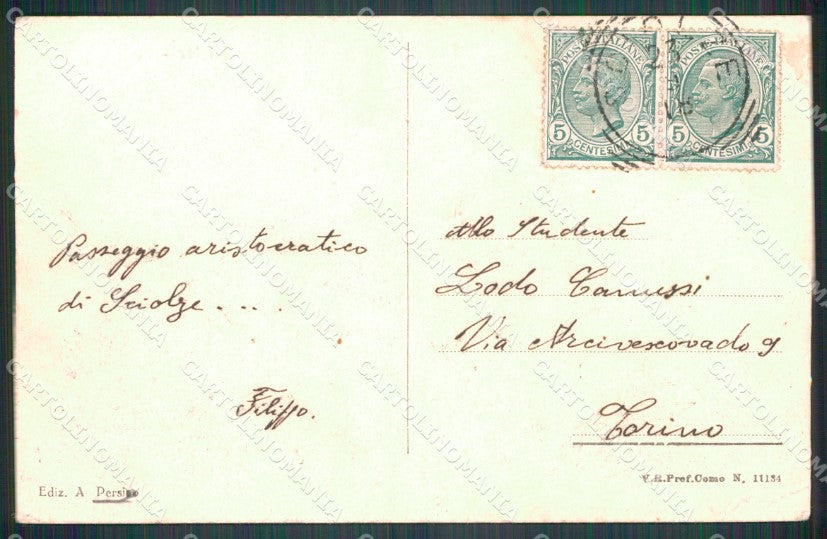 POSTE ITALIANE
5 5
CENTESIMI
POSTE ITALIANE
5 5
CENTESIMI
Passeggio aristocratico
di Sciolze ....
Filippo.
Allo Studente
Lodo Canussi
Via Arcivescovado 9
Torino
Ediz. A Persino
V.R.Pref.Como N. 11134
CARTOLINOMANIA